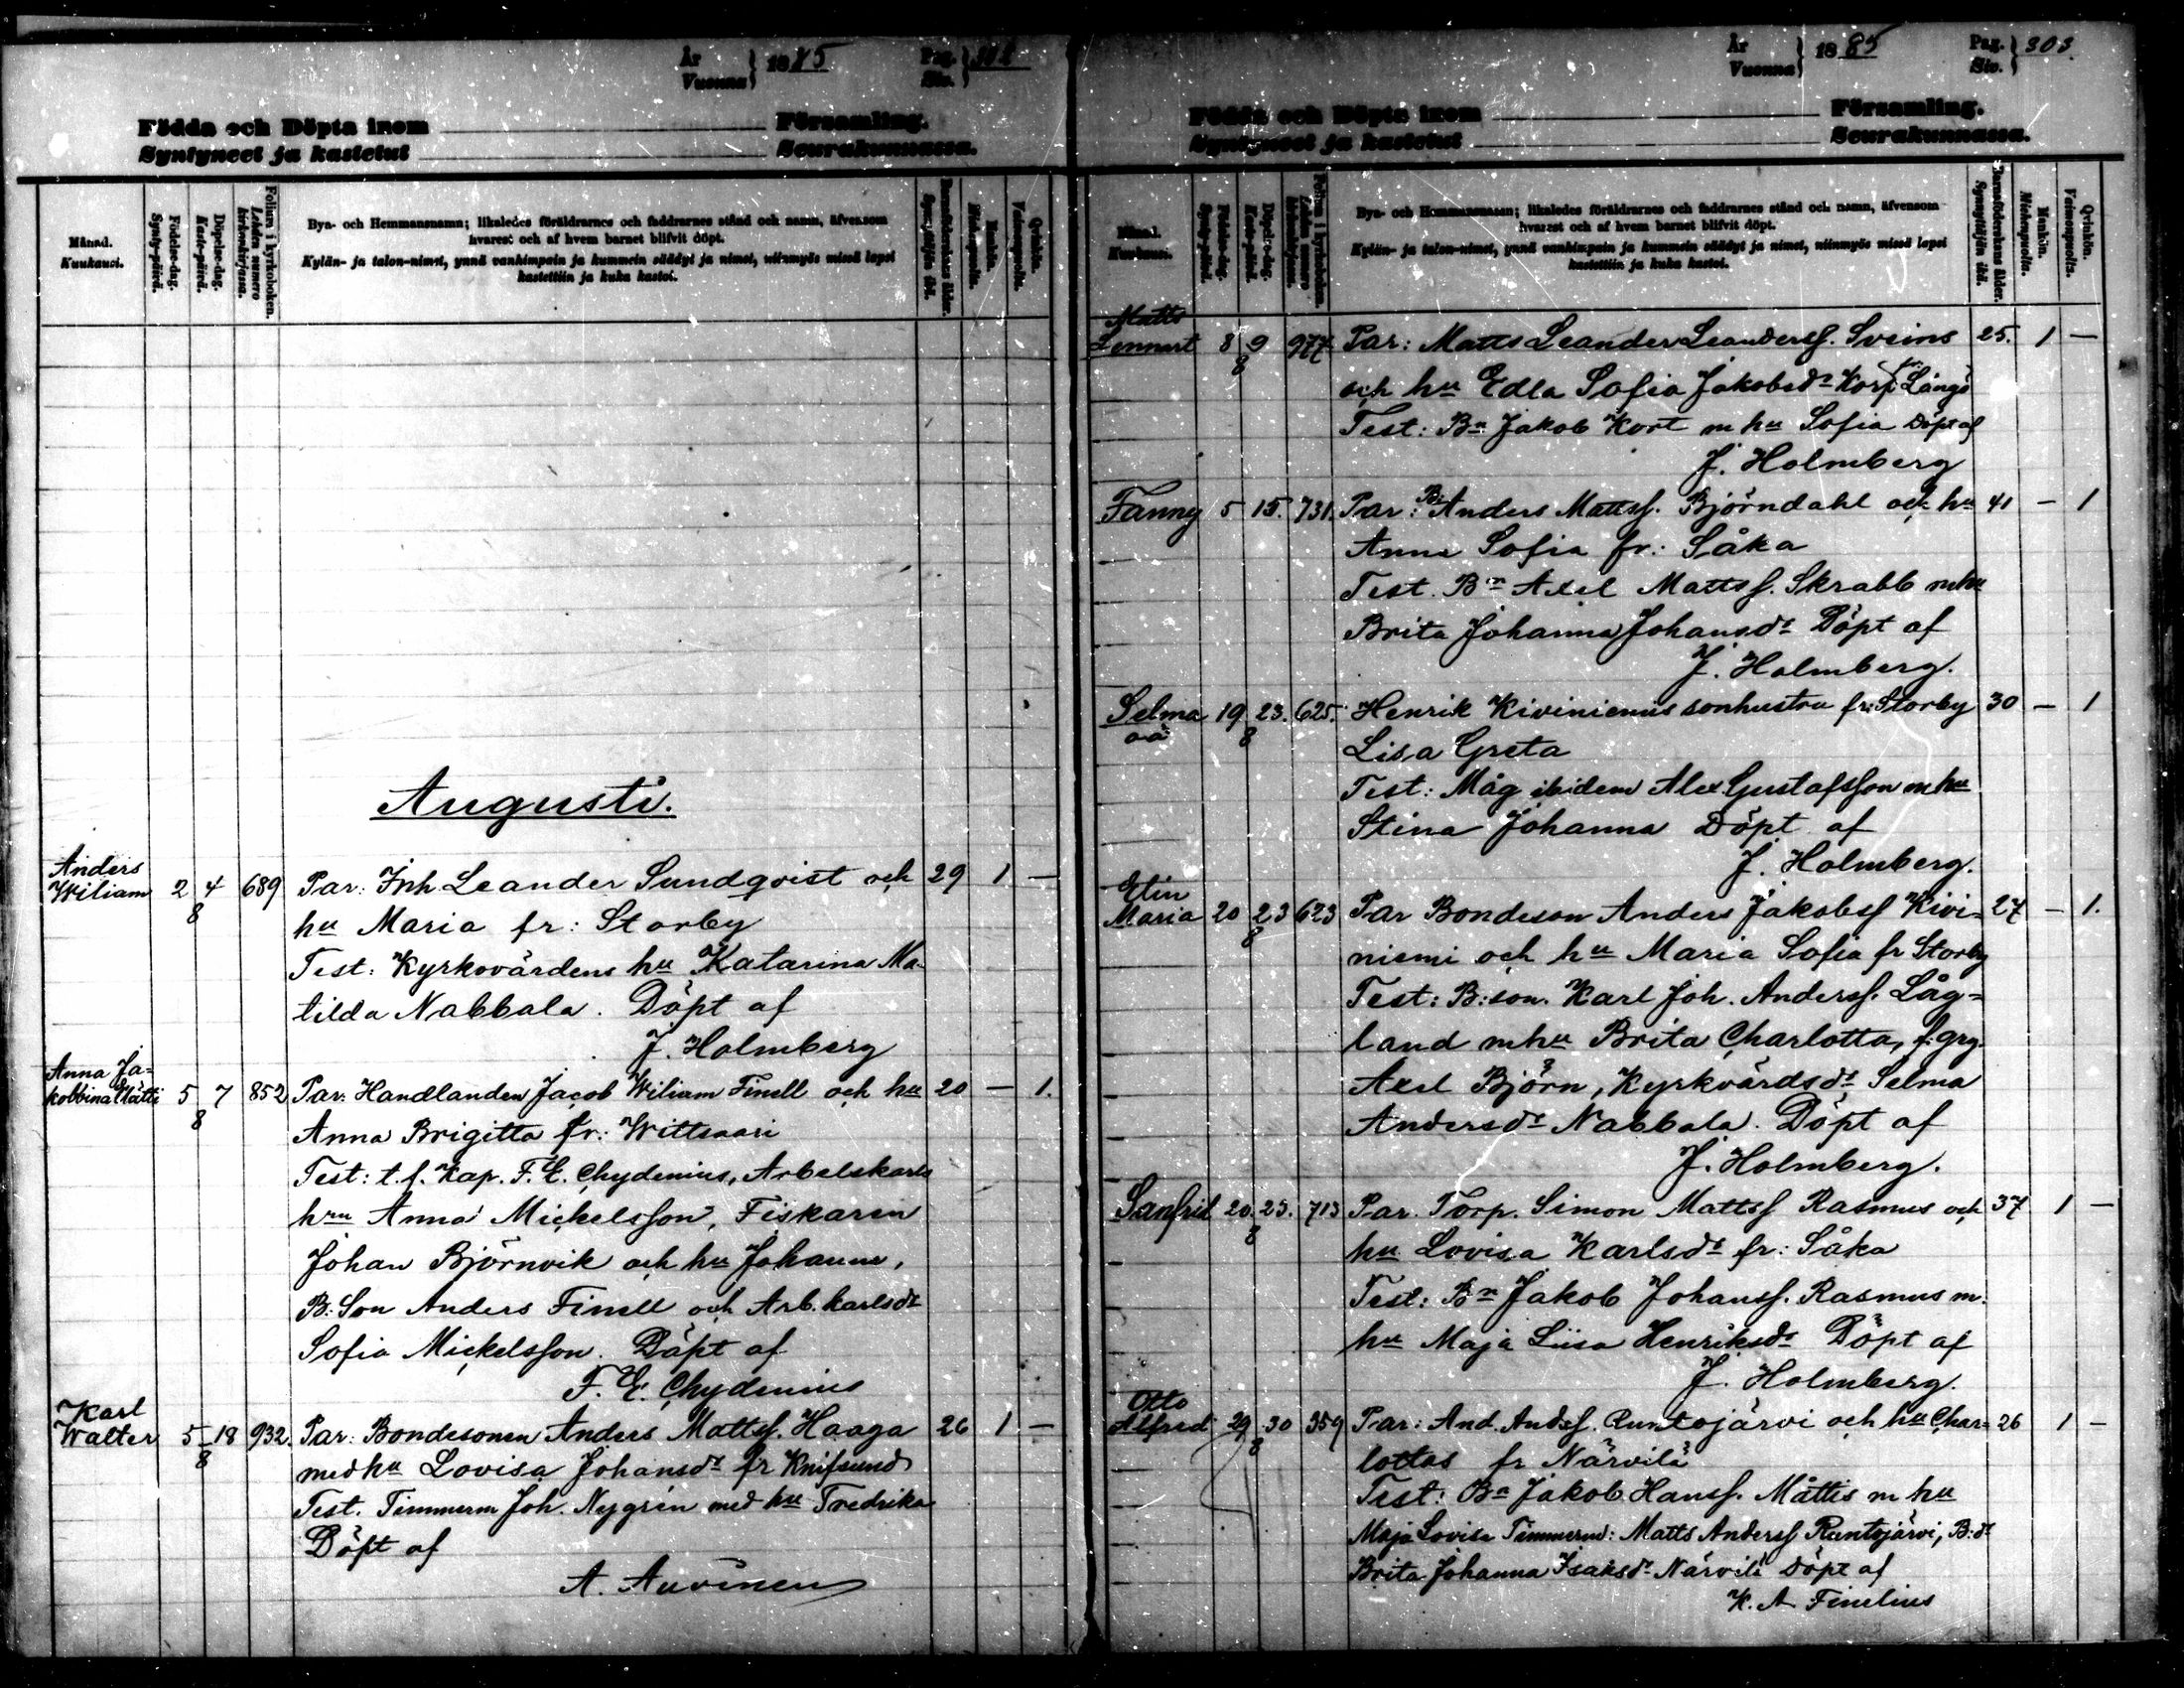 År
Vuonna } 1885 Pag.
Siv. } 302
Födda och Döpta inom Församling.
Syntyneet ja kastetut Seurakunnassa.
Månad.
Kuukausi.
Födelse-dag.
Synty-päivä.
Döpelse-dag.
Kaste-päivä.
Folium i kyrkoboken.
Lehden numero kirkonkirjassa.
Bya- och Hemmansnamn; likaledes föräldrarnes och faddrarnes stånd och namn, äfvensom
hvarest och af hvem barnet blifvit döpt.
Kylän- ja talon-nimet, ynnä vanhimpain ja kummein säädyt ja nimet, niinmyös missä lapsi
kastettiin ja kuka kastoi.
Barnaföderskans ålder.
Synnyttäjän ikä.
Mankön.
Miehenpuolta.
Qvinkön.
Vaimonpuolta.
Augusti.
Anders
Wiliam 2 4/8 689 Par: Inh Leander Sundqvist och 29 1 —
hu Maria fr: Storby
Test: Kyrkovärdens hu Katarina Ma-
tilda Nabbala. Döpt af
J. Holmberg
Anna Ja-
kobbina 5 7/8 852 Par: Handlanden Jacob Wiliam Finell och hu 20 — 1.
Anna Brigitta fr: Wittsaari
Test: t.f. Kap. F. E. Chydenius, Arbetskarls
hru Anna Mickelsson, Fiskaren
Johan Björnvik och hu Johanna,
B: Son Anders Finell och Arb. karlsdr
Sofia Mickelsson. Döpt af
F. E. Chydenius
Karl
Walter 5 18/8 932. Par: Bondesonen Anders Mattsf. Haaga 26 1 —
med hu Lovisa Johansdr fr Knifsund
Test. Timmerm Joh. Nygrén med hu Fredrika
Döpt af
A. Auvinen
År
Vuonna } 1885 Pag.
Siv. } 303
Födda och Döpta inom Församling.
Syntyneet ja kastetut Seurakunnassa.
Månad.
Kuukausi.
Födelse-dag.
Synty-päivä.
Döpelse-dag.
Kaste-päivä.
Folium i kyrkoboken.
Lehden numero kirkonkirjassa.
Bya- och Hemmansnamn; likaledes föräldrarnes och faddrarnes stånd och namn, äfvensom
hvarest och af hvem barnet blifvit döpt.
Kylän- ja talon-nimet, ynnä vanhimpain ja kummein säädyt ja nimet, niinmyös missä lapsi
kastettiin ja kuka kastoi.
Barnaföderskans ålder.
Synnyttäjän ikä.
Mankön.
Miehenpuolta.
Qvinkön.
Vaimonpuolta.
Matts
Lennart 8 9/8 977 Par: Matts Leander Leandersf. Sveins 25. 1 —
och hu Edla Sofia Jakobsdr
Test: Bn Jakob Kort m hu Sofia Döpt af
J. Holmberg
Fanny 5 15. 731. Par: Bn Anders Mattsf. Björndahl och hu 41 — 1
Anna Sofia fr: Såka
Test. Bn Axel Mattsf. Skrabb m hu
Brita Johanna Johansdr Döpt af
J. Holmberg.
Selma 19 23./8 625. Henrik Kiviniemis sonhustru fr: Storby 30 — 1
oä
Lisa Greta
Test: Måg ibidem Alex Gustafsson m hu
Stina Johanna Döpt af
J. Holmberg.
Elin
Maria 20 23/8 623 Par Bondeson Anders Jakobsf Kivi= 27 — 1.
niemi och hu Maria Sofia fr Storby
Test: B:son. Karl Joh. Andersf. Låg=
land m hu Brita Charlotta,
Axel Björn, Kyrkvärdsdr Selma
Andersdr Nabbala. Döpt af
J. Holmberg.
Sanfrid 20. 23./8 713 Par. Torp. Simon Mattsf Rasmus och 37 1 —
hu Lovisa Karlsdr fr: Såka
Test: Bn Jakob Johansf. Rasmus m.
hu Maja Liisa Henriksdr Döpt af
J. Holmberg.
Otto
Alfred 29 30/8 359 Par: And. Andsf. Runtojärvi och hu Char= 26 1 —
lottas fr Närvilä
Test: Bn Jakob Hansf. Mattis m hu
Maja Lovisa Matts Andersf Runtojärvi, B:dr
Brita Johanna Isaksdr Närvilä Döpt af
K. A Finelius